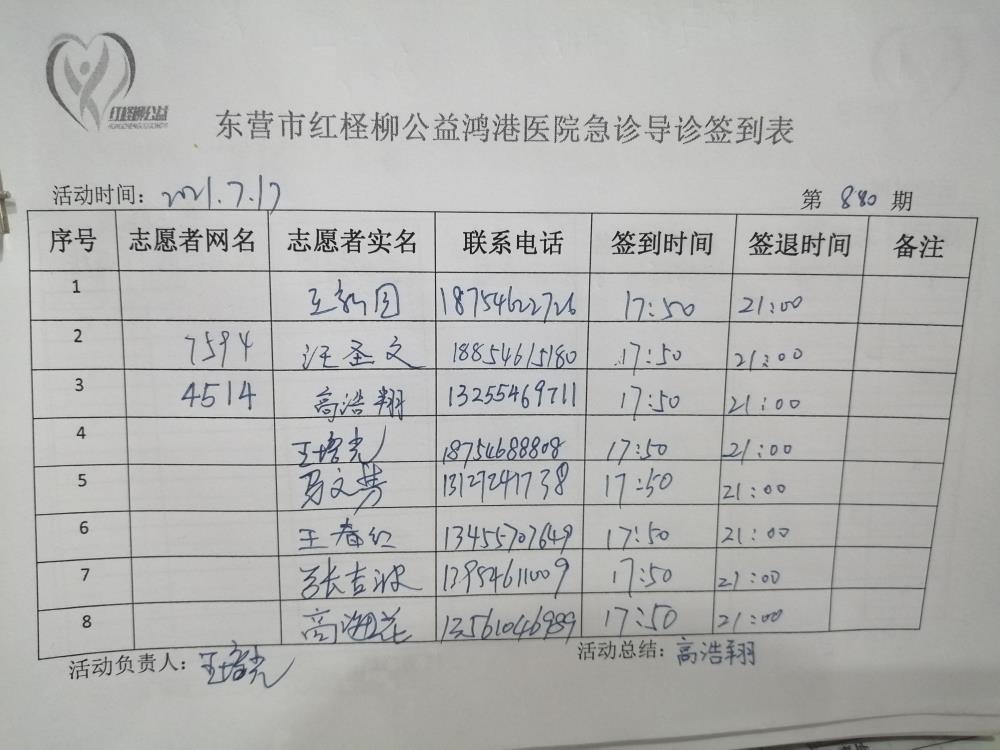 红柽柳公益
HONGCHENGLIUGONGYI
东营市红柽柳公益鸿港医院急诊导诊签到表
活动时间：2021.7.17 第 880 期
序号 志愿者网名 志愿者实名 联系电话 签到时间 签退时间 备注
1 王新国 18754622726 17:50 21:00
2 7594 汪圣文 18854615180 17:50 21:00
3 4514 高浩翔 13255469711 17:50 21:00
4 王培光 18754688808 17:50 21:00
5 马文慧 13127241738 17:50 21:00
6 王春红 13455707649 17:50 21:00
7 张吉波 13954611009 17:50 21:00
8 高海花 13561046989 17:50 21:00
活动负责人：王培光 活动总结：高浩翔